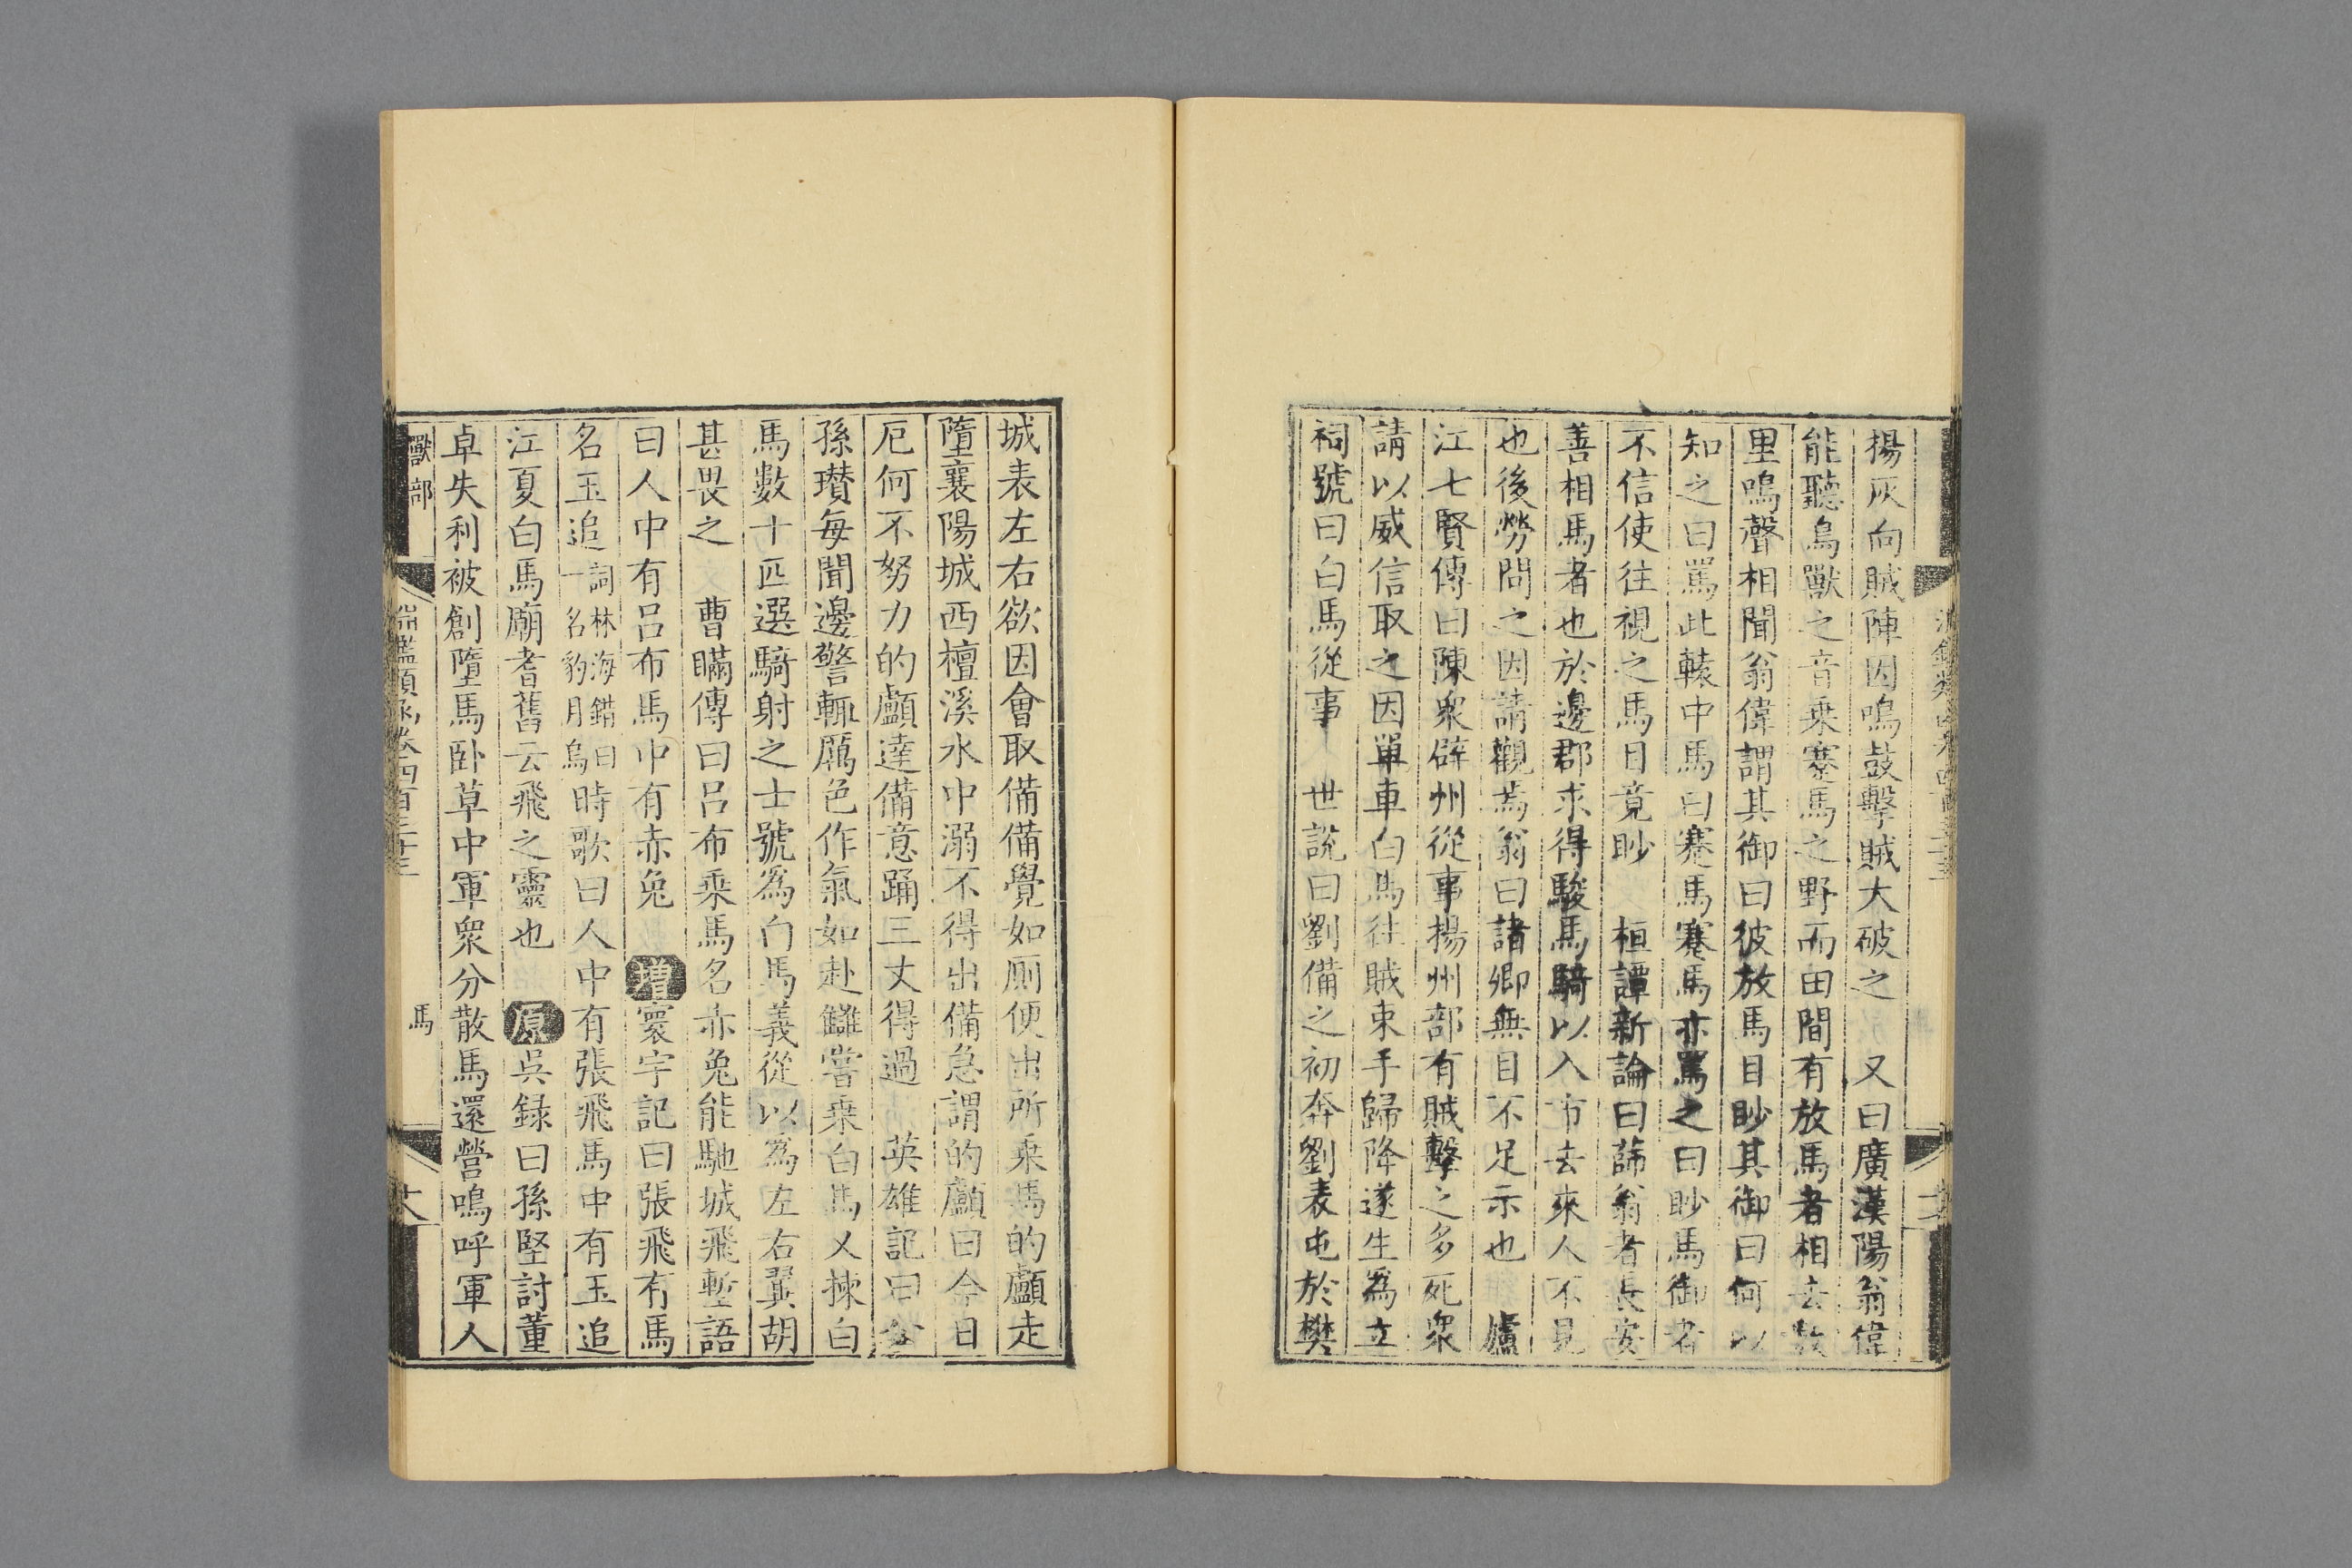 揚灰向賊陣因鳴鼓擊賊大破之 又曰廣漢陽翁偉
能聽鳥獸之音乘蹇馬之野而田間有放馬者相去數
里鳴聲相聞翁偉謂其御曰彼放馬目眇其御曰何以
知之曰罵此轅中馬曰蹇馬蹇馬亦罵之曰眇馬御者
不信使往視之馬目竟眇 桓譚新論曰薛翁者長安
善相馬者也於邊郡求得駿馬騎以入市去來人不見
也後勞問之因請觀焉翁曰諸卿無目不足示也 廬
江七賢傳曰陳衆辟州從事揚州部有賊擊之多死衆
請以威信取之因單車白馬往賊束手歸降遂生爲立
祠號曰白馬從事 世說曰劉備之初奔劉表屯於樊
城表左右欲因會取備備覺如厠便出所乘馬的顱走
墮襄陽城西檀溪水中溺不得出備急謂的顱曰今日
厄何不努力的顱達備意踊三丈得過 英雄記曰公
孫瓚每聞邊警輒厲色作氣如赴讎嘗乗白馬又揀白
馬數十匹選騎射之士號爲白馬義從以爲左右翼胡
甚畏之 曹瞞傳曰呂布乘馬名赤兔能馳城飛塹語
曰人中有呂布馬中有赤兔 增寰宇記曰張飛有馬
名玉追詞林海錯曰一名豹月烏時歌曰人中有張飛馬中有玉追
江夏白馬廟耆舊云飛之靈也 原吳録曰孫堅討董
卓失利被創墮馬卧草中軍衆分散馬還營鳴呼軍人
獸部 淵鑑類函卷四百三十三 馬 六